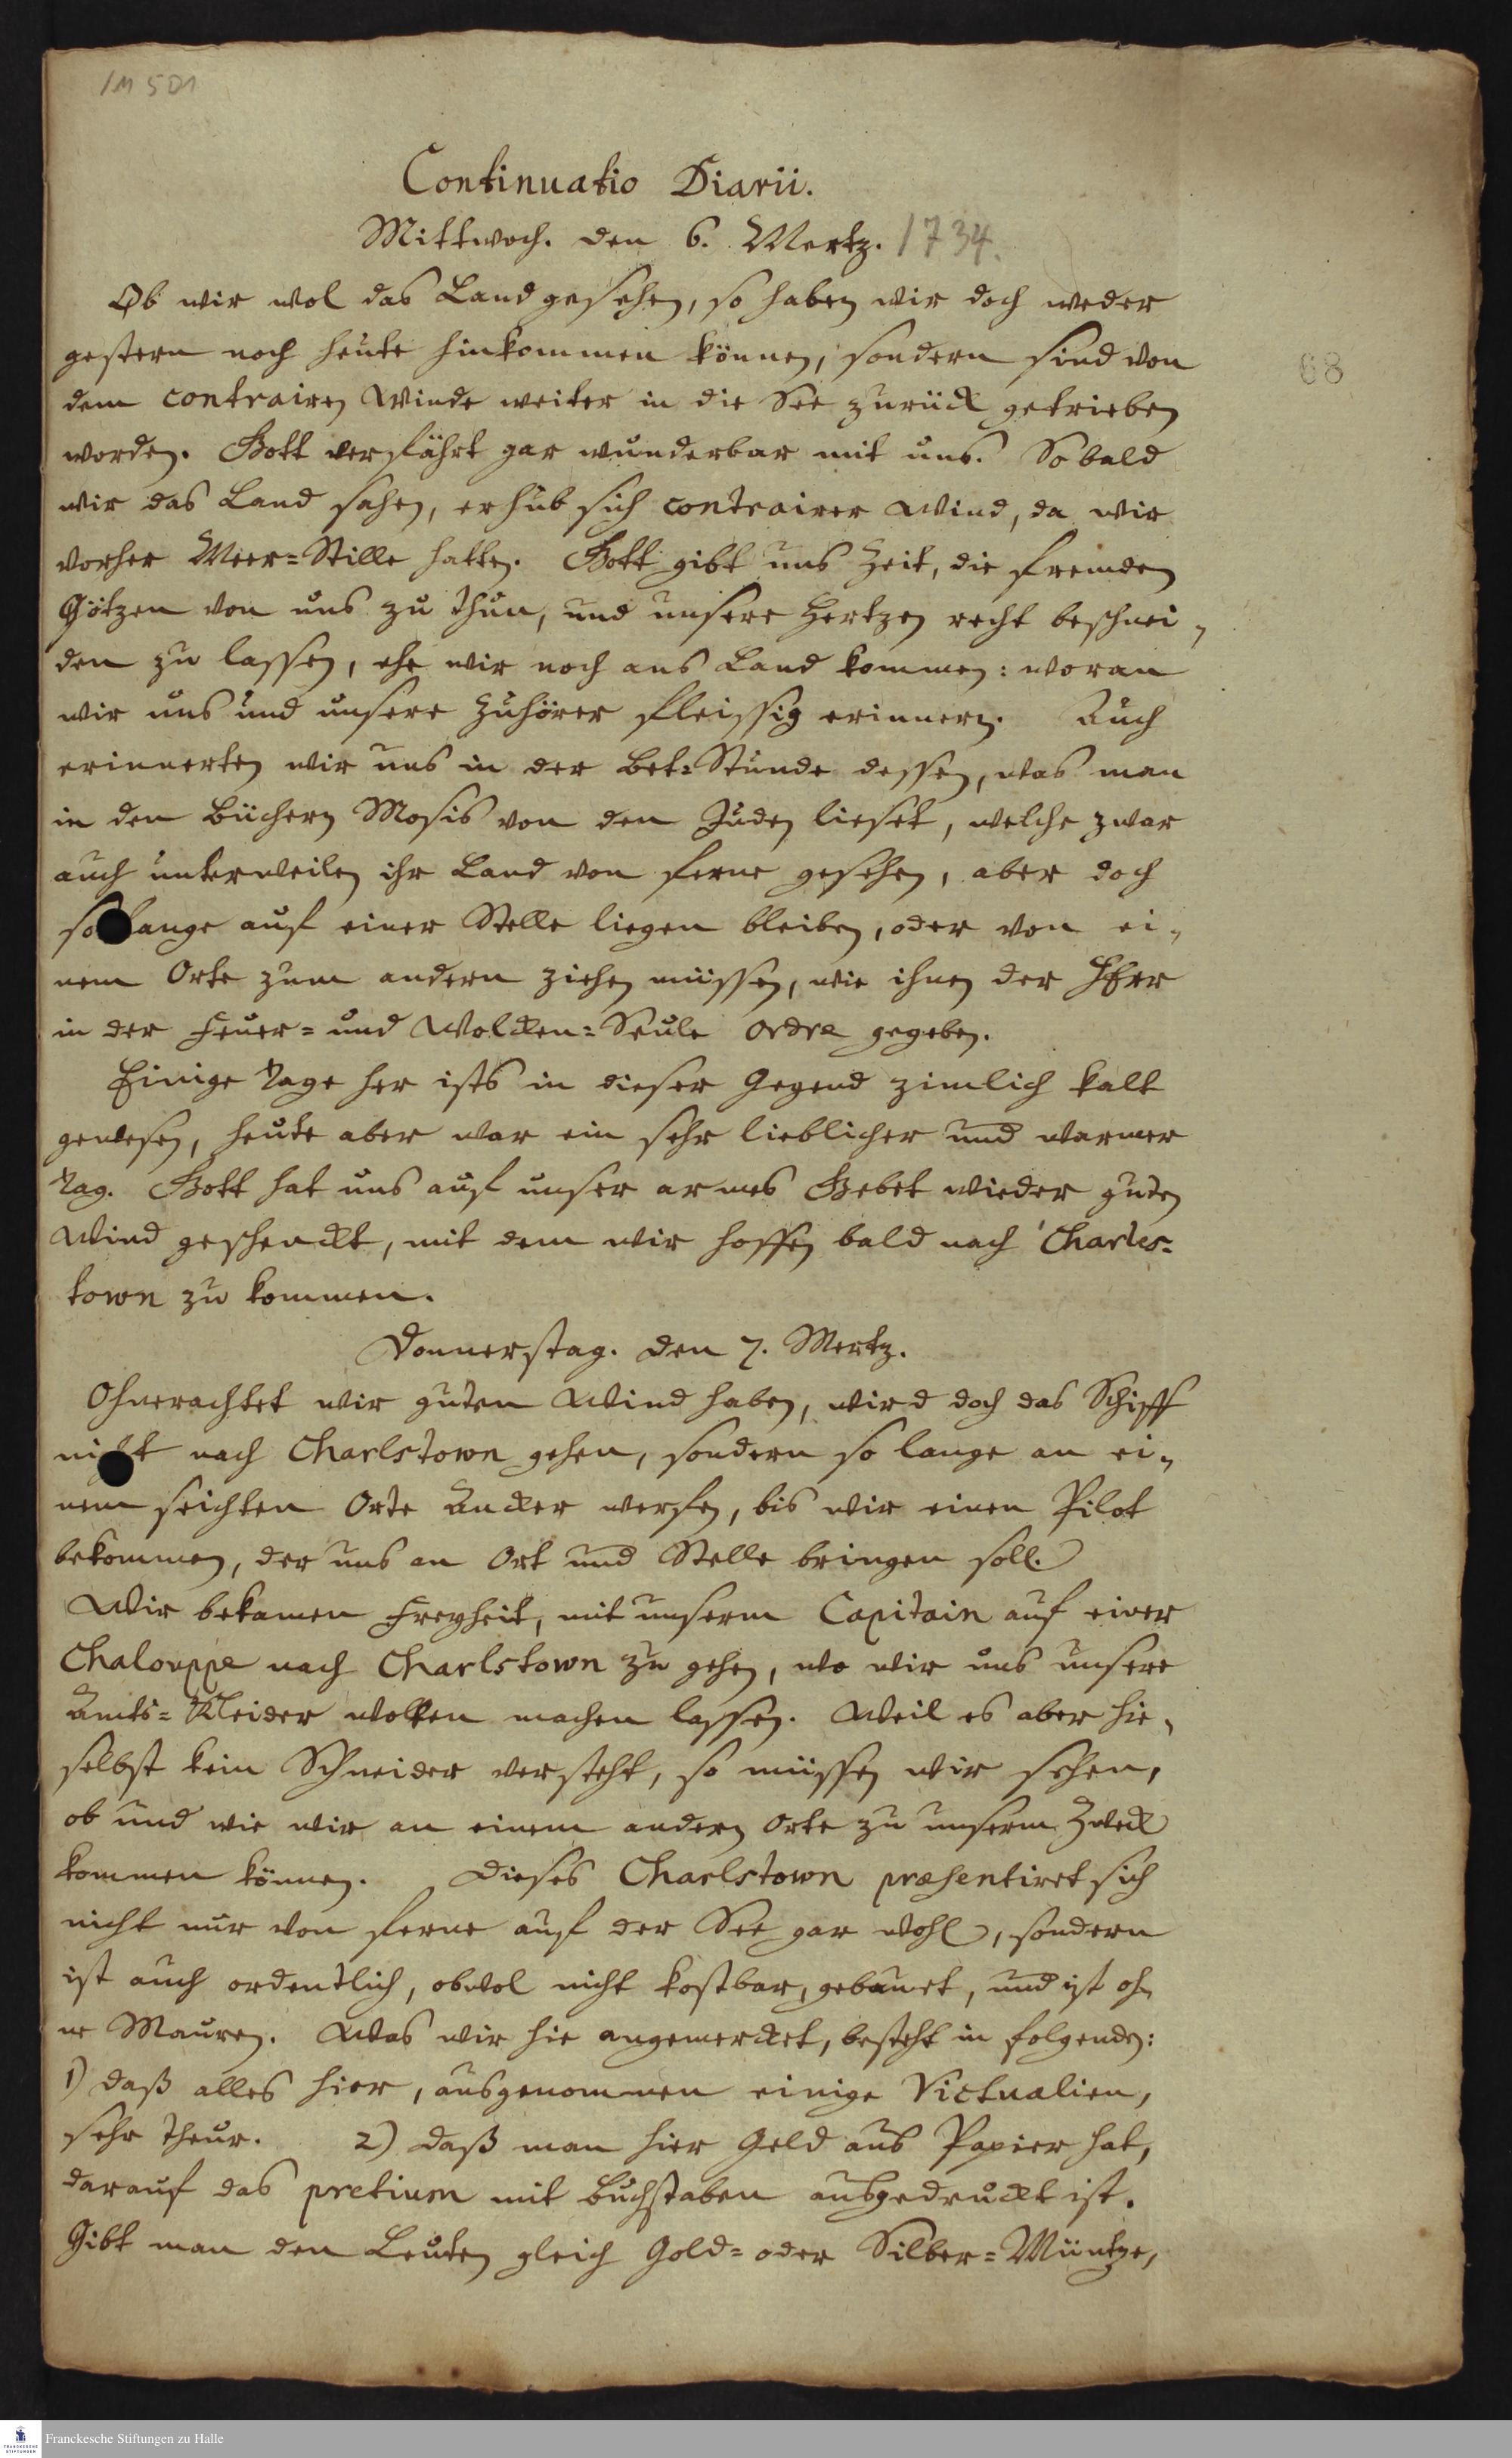 1M 5D1
Continuatio Diarii.
Mittwoch. den 6. Mertz. 1734.
Ob wir wol das Land gesehen, so haben wir doch weder
gestern noch heute hinkommen können, sondern sind von
dem contrairen Winde weiter in die See zurück getrieben
worden. Gott verfährt gar wunderbar mit uns. So bald
wir das Land sahen, erhub sich contrairer Wind, da wir
vorher Meer=Stille hatten. Gott gibt uns Zeit, die fremden
Götzen von uns zu thun, und unsere Hertzen recht beschnei-
den zu lassen, ehe wir noch ans Land kommen: woran
wir uns und unsere Zuhörer fleissig erinnern. Auch
erinnerten wir uns in der Bet=Stunde dessen, was man
in den Büchern Mosis von den Juden lieset, welche zwar
auch unterweilen ihr Land von ferne gesehen, aber doch
so lange auf einer Stelle liegen bleiben, oder von ei-
nem Orte zum andern ziehen müssen, wie ihnen der HErr
in der Feuer= und Wolcken=Seule ordre gegeben.
Einige Tage her ists in dieser Gegend zimlich kalt
gewesen, heute aber war ein sehr lieblicher und warmer
Tag. Gott hat uns auf unser armes Gebet wieder guten
Wind geschenckt, mit dem wir hoffen bald nach Charles=
town zu kommen.
Donnerstag. den 7. Mertz.
Ohnerachtet wir guten Wind haben, wird doch das Schiff
nicht nach Charlstown gehen, sondern so lange an ei-
nem seichten Orte Ancker werfen, bis wir einen Pilot
bekommen, der uns an Ort und Stelle bringen soll.
Wir bekamen Freyheit, mit unserm Capitain auf einer
Chalouppe nach Charlstown zu gehen, wo wir uns unsere
Amts=Kleider wolten machen lassen. Weil es aber hie-
selbst kein Schneider versteht, so müssen wir sehen,
ob und wie wir an einem andern Orte zu unserm Zweck
kommen können. Dieses Charlstown præsentiret sich
nicht nur von ferne auf der See gar wohl, sondern
ist auch ordentlich, obwol nicht kostbar, gebauet, und ist oh-
ne Mauren. Was wir hie angemercket, besteht in folgenden:
1) daß alles hier, ausgenommen einige Victualien,
sehr theur. 2) daß man hier Geld aus Papier hat,
darauf das pretium mit Buchstaben ausgedruckt ist.
Gibt man den Leuten gleich Gold= oder Silber=Müntze,
68
Franckesche Stiftungen zu Halle